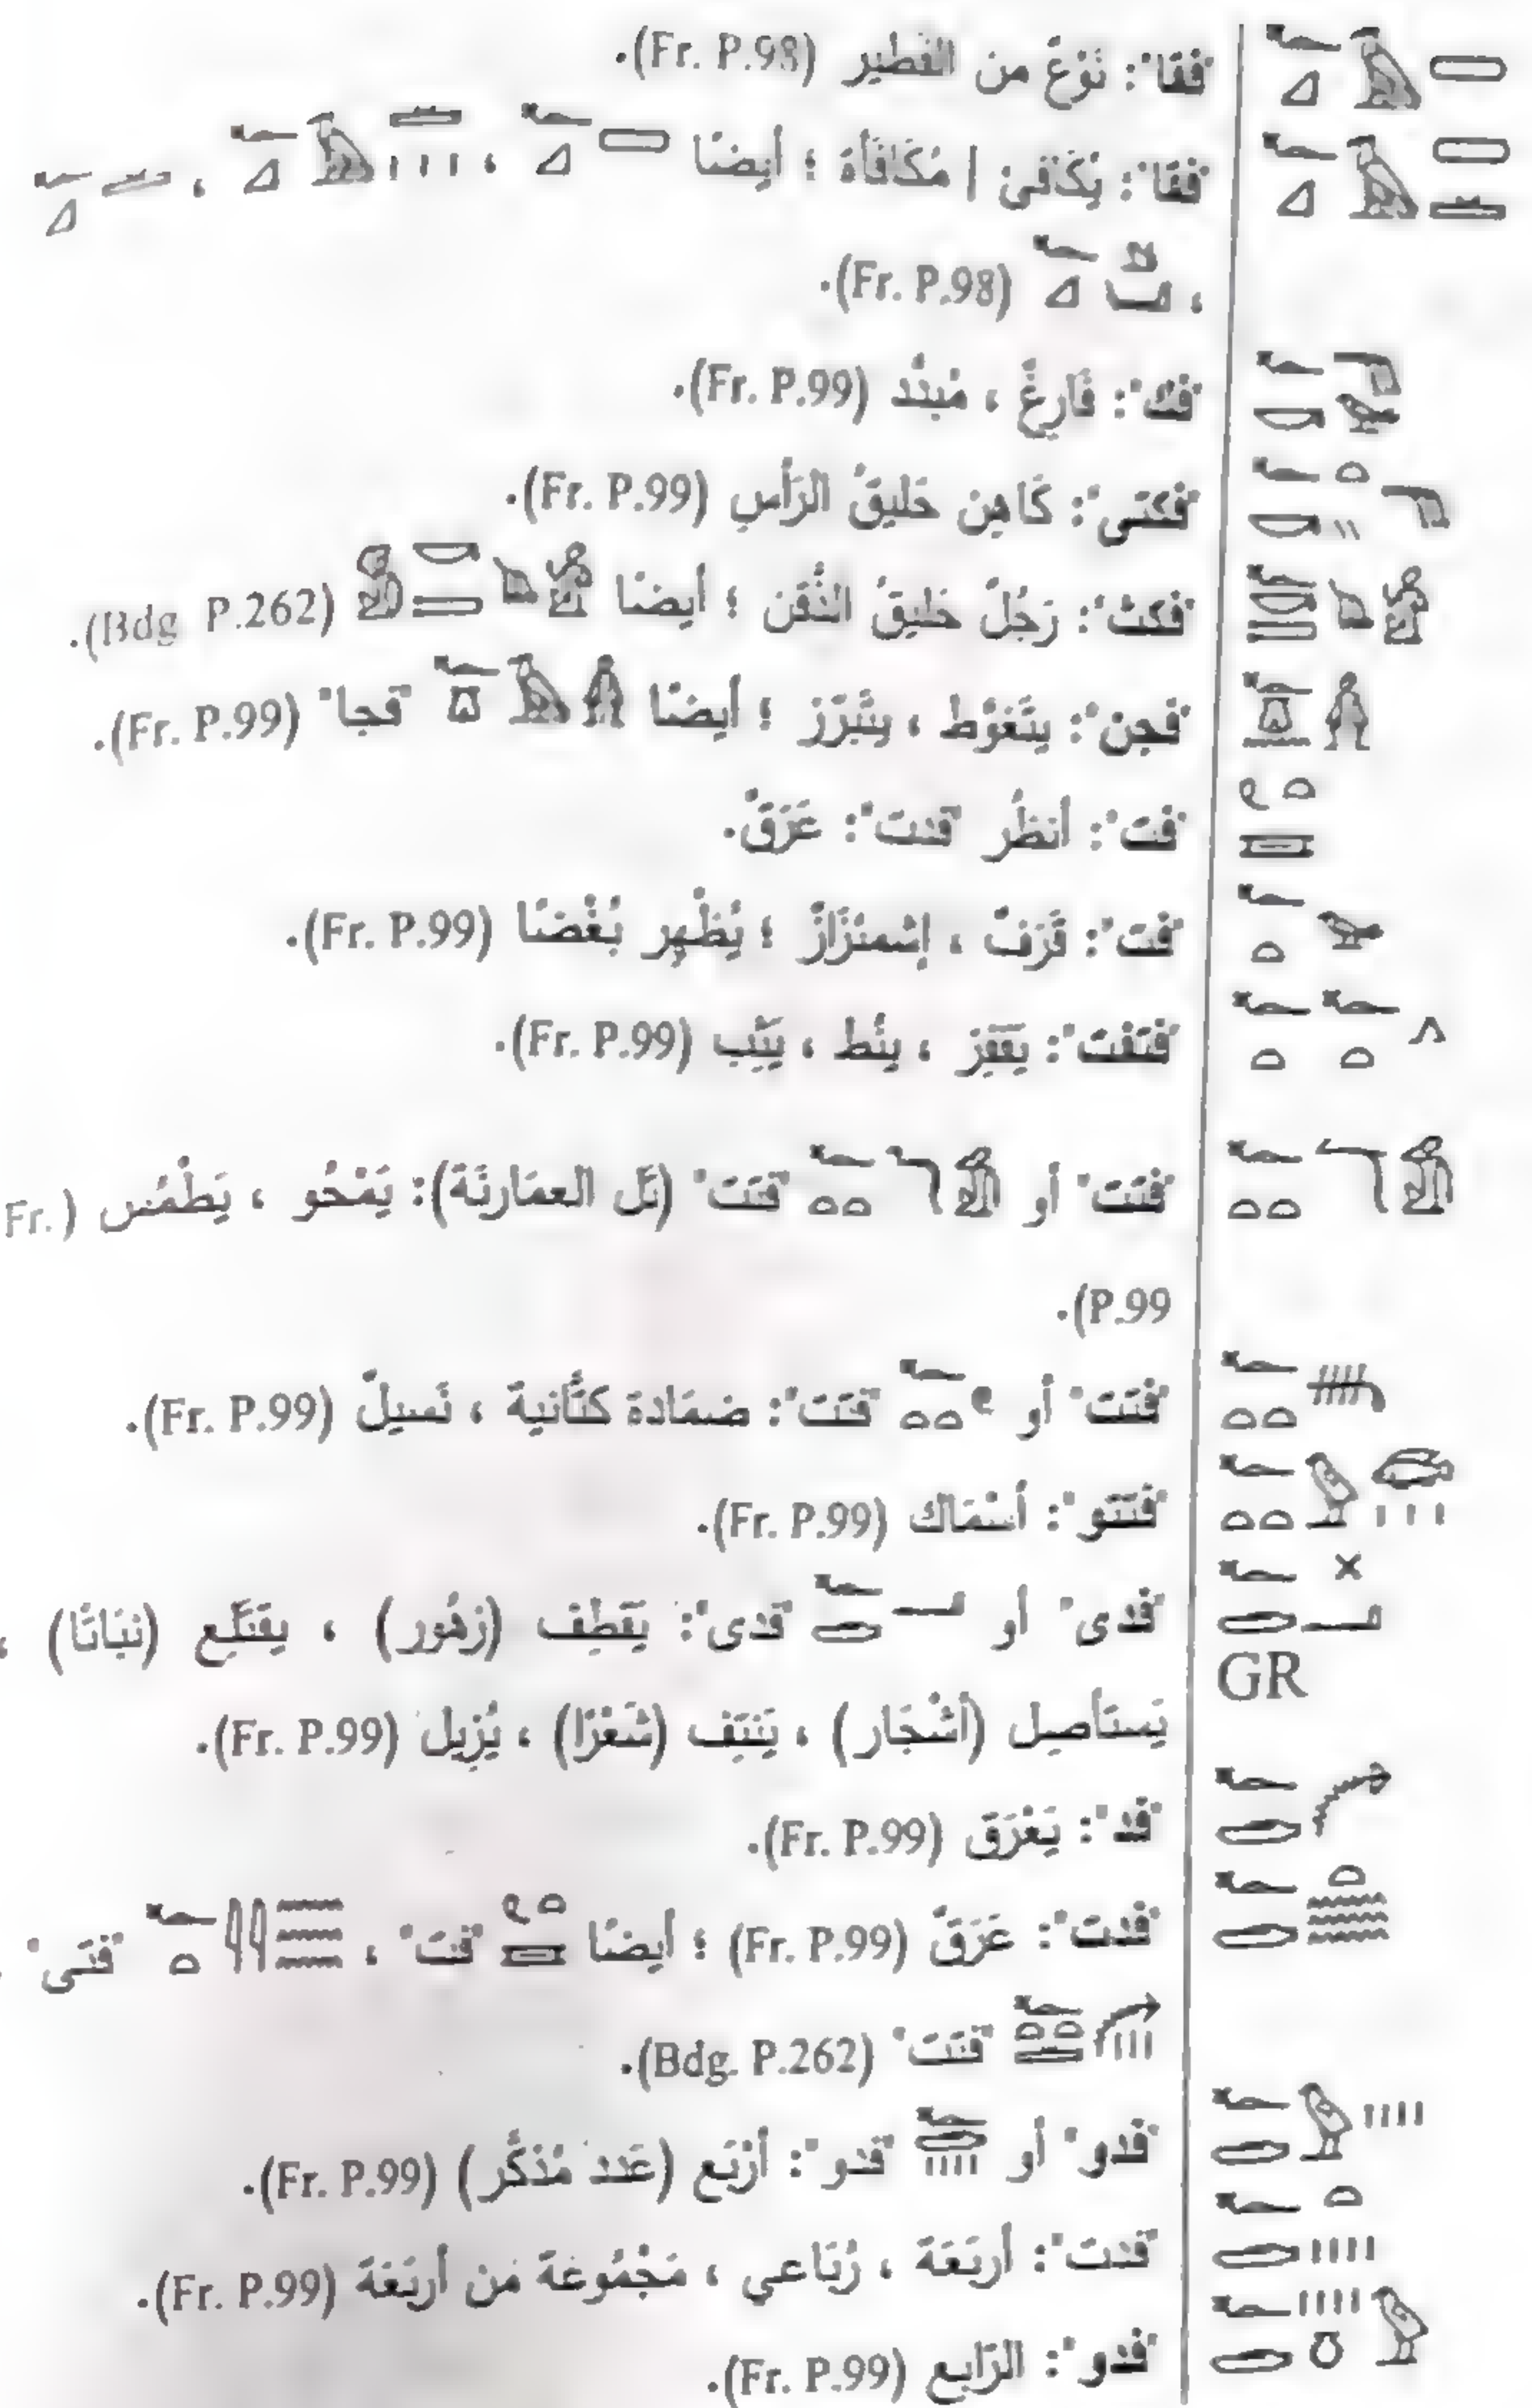 "فقا": نَوْعٌ من الفَطير (Fr. P.98).
"فقا": يُكَافئ | مُكَافَأة ؛ أيضًا ، ،
، (Fr. P.98).
"فك": فَارِغٌ ، مُبدَّد (Fr. P.99).
"فكتى": كَاهِن حَليقُ الرَأسِ (Fr. P.99).
"فكث": رَجُلٌ حَليقُ الذَّقن ؛ أيضًا (Bdg P.262).
"فجن": يتَغوَّط ، يتَبَرَّز ؛ أيضًا "فجا" (Fr. P.99).
"فت": أنظُر "فدت": عَرَقٌ.
"فت": قَرَفٌ ، إشمئزَازٌ ؛ يُظْهِر بُغْضًا (Fr. P.99).
"فتفت": يَقفِز ، ينُط ، يَثِب (Fr. P.99).
"فتت" أو "فتت" (تَل العمَارنَة): يَمْحُو ، يَطْمُس (Fr.
P.99).
"فتت" أو "فتت": ضمَادة كتَّانية ، نَسيلٌ (Fr. P.99).
"فتتو": أسْمَاك (Fr. P.99).
"فدى" أو "فدى": يَقطِف (زهُور) ، يقتَلِع (نبَاتًا) ،
GR
يَستَأصِل (أشْجَار) ، يَنتِف (شَعْرًا) ، يُزِيل (Fr. P.99).
"فد": يَعْرَق (Fr. P.99).
"فدت": عَرَقٌ (Fr. P.99) ؛ أيضًا "فت" ، "فتى"
"فتت" (Bdg. P.262).
"فدو" أو "فدو": أرْبَع (عَدد مُذكَّر) (Fr. P.99).
"فدت": أربَعَة ، رُبَاعي ، مَجْمُوعَة مَن أربَعَة (Fr. P.99).
"فدو": الرَّابِع (Fr. P.99).